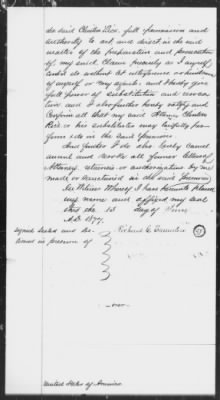 do said Clinton Rice, full permission and
authority to act and direct in the said
matter of the preparation and prosecution
of my said Claim precisely as I myself
could do without let interference or hindrance
of myself or my agents, and I hereby give
full power of substitution and revoca-
tion and I also further hereby ratify and
Confirm all that my said Attorney Clinton
Rice or his substitutes may lawfully per-
form also in the said premises
And further I do also hereby Cancel
annul and revoke all former Letters of
Attorney, retainers or authorization by me
made or executed in the said premises
In Witness Whereof I have hereunto placed
my name and affixed my seal
this the 15 day of June
A.D. 1877.
signed sealed and de-
livered in presence of
Richard C.
United States of America